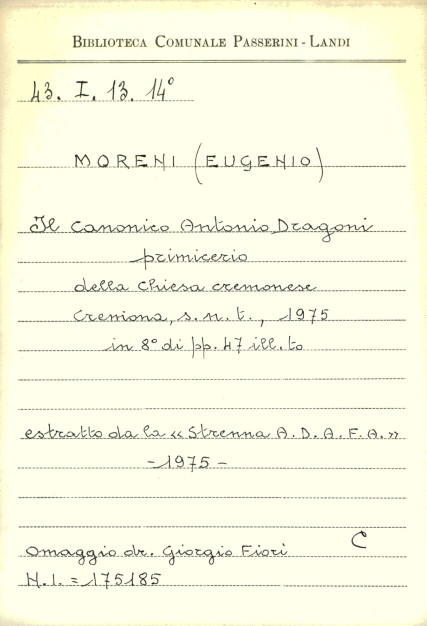 BIBLIOTECA COMUNALE PASSERINI - LANDI
43. I. 13. 14°
MORENI (EUGENIO)
Il Canonico Antonio Dragoni
primicerio
della Chiesa cremonese
Cremona, s. n. t., 1975
in 8° di pp. 47 ill.to
estratto da la «Strenna A. D. A. F. A.»
-1975-
C
Omaggio dr. Giorgio Fiori
N.I. = 175185